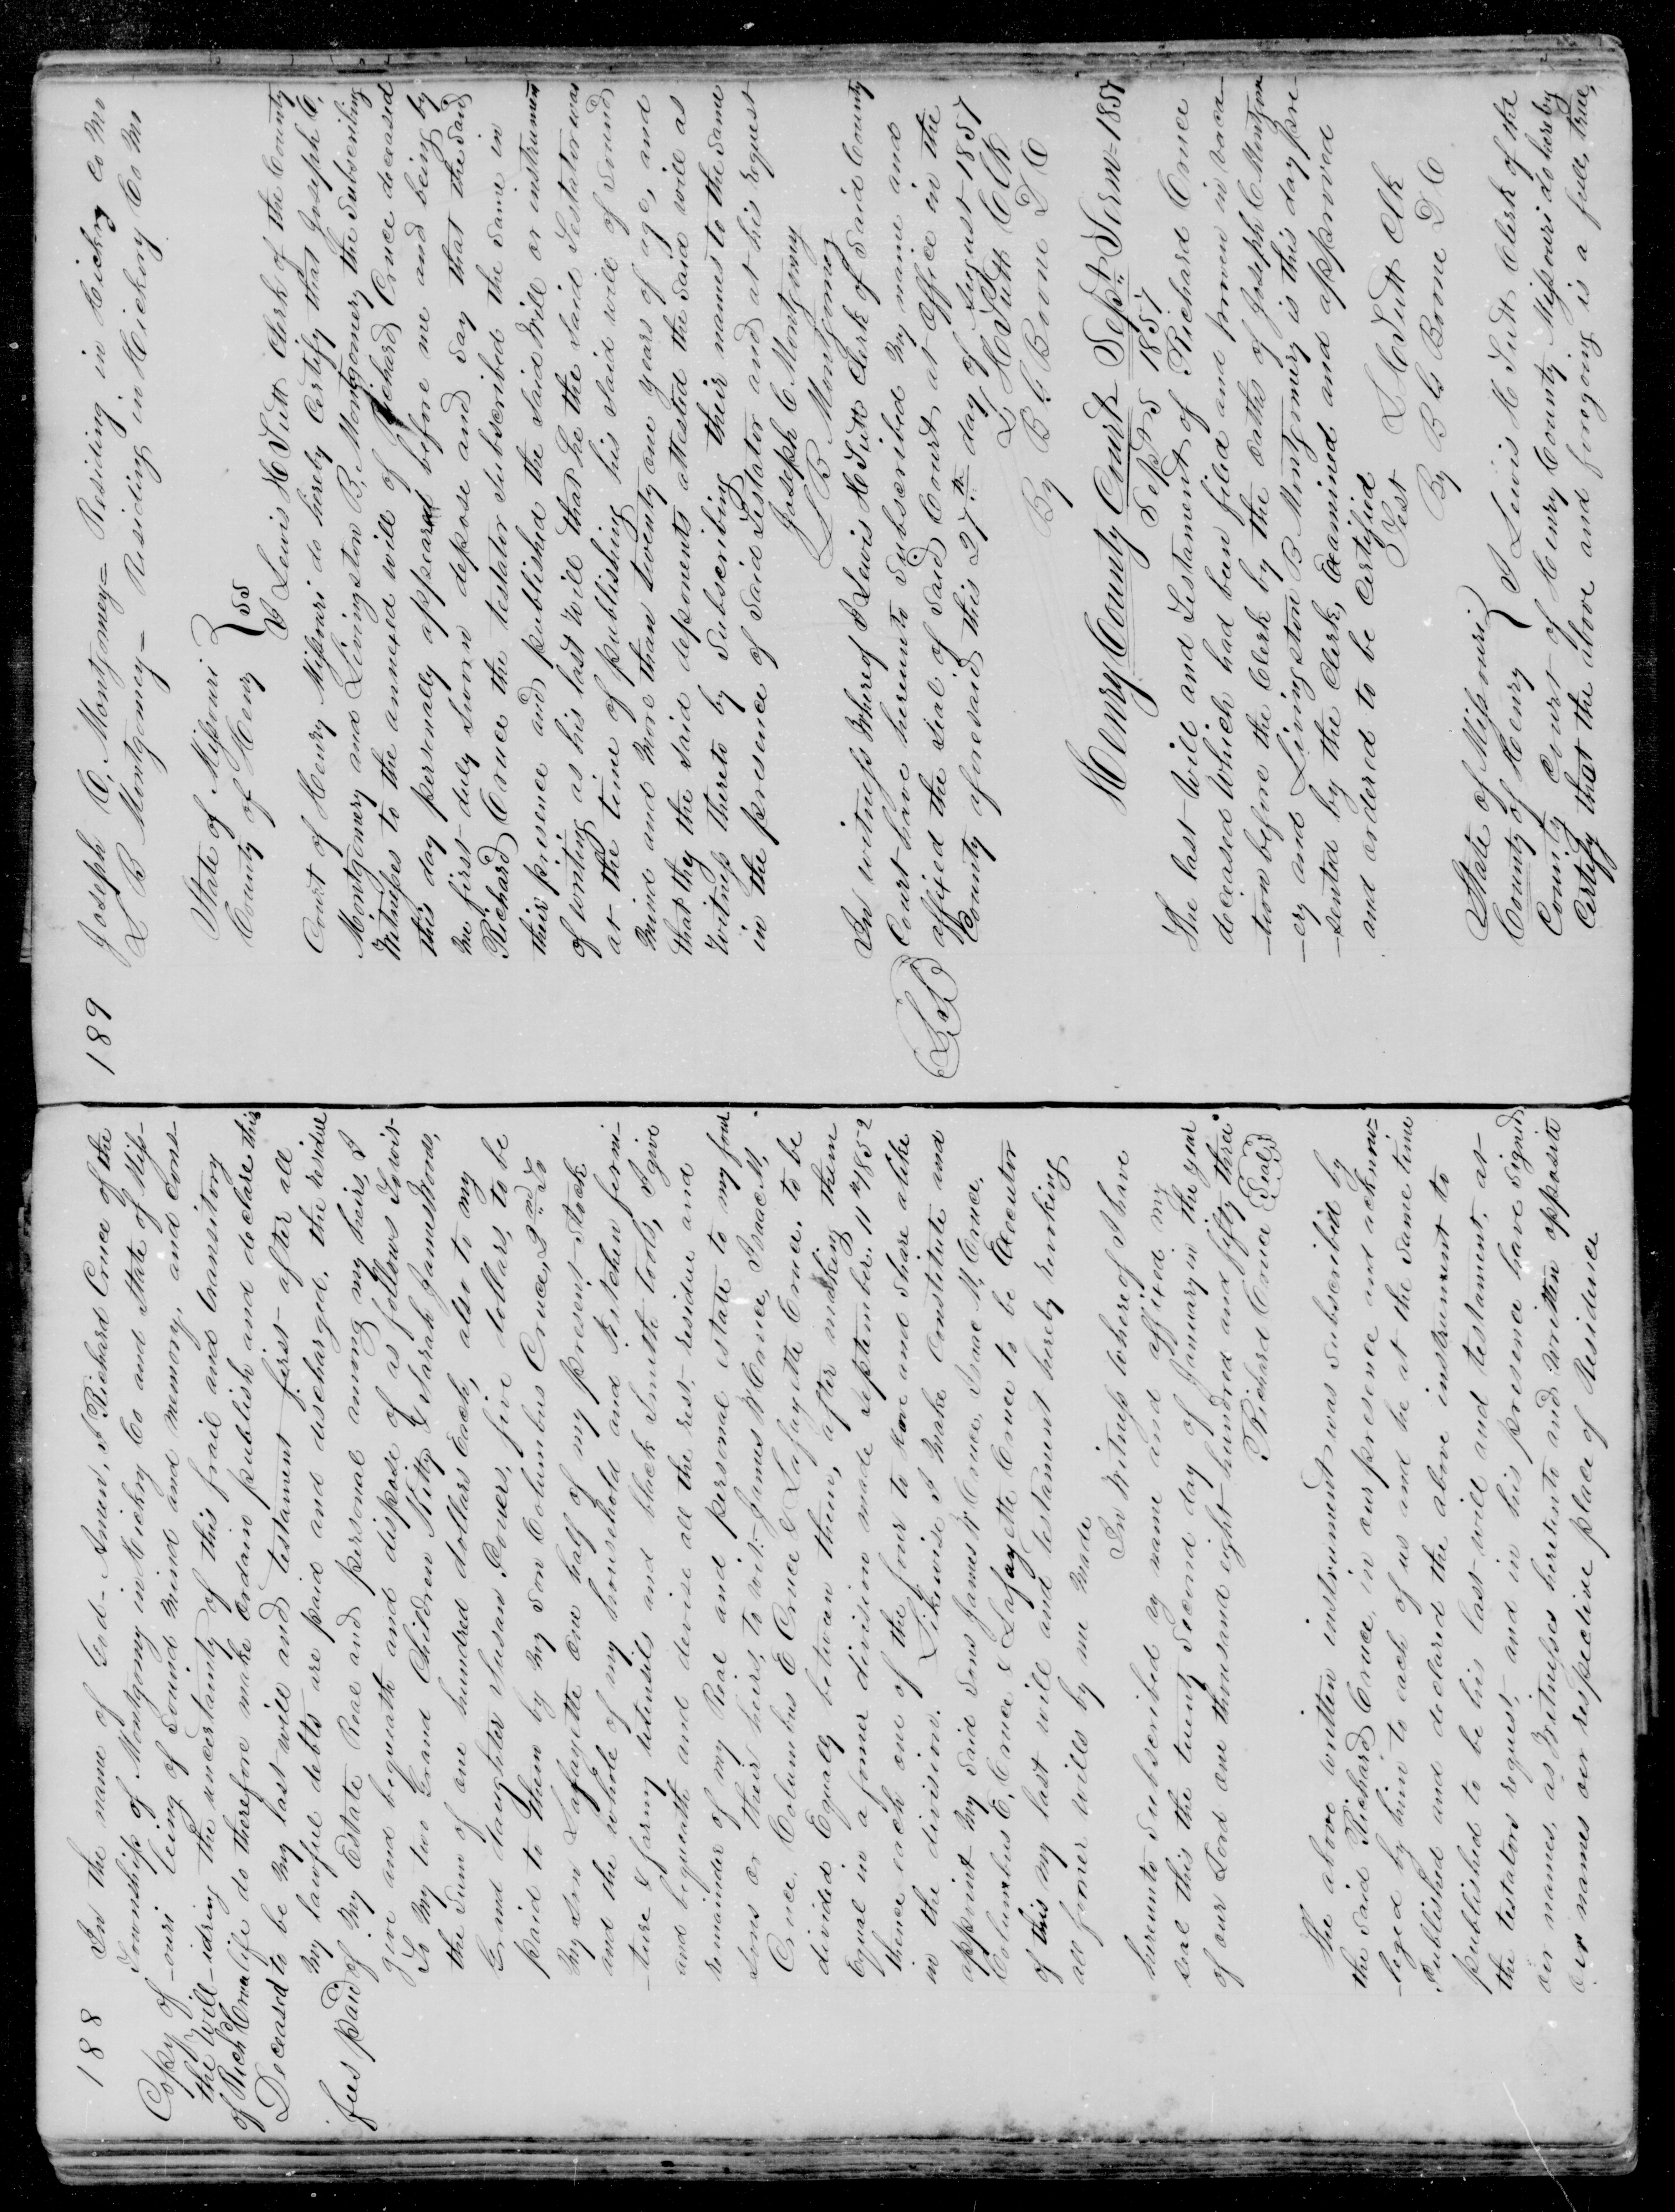 188
Copy of
the Will
of Rich Cruce
Deceased
fees paid
In the name of God - Amen, I Richard Cruce of the
Township of Montgomy in Hickry Co and State of Miss-
-ouri being of Sound mind and memory, and cons-
-idring the uncertainty of this frail and transitory
life do therefore make ordain publish and declare this
to be my last will and testament first - after all
my lawful debts are paid and discharged, the residue
of My Estate Real and personal among my heirs, I
give and bequeath and dispose of as follows Towit
To My two Grand Children Kitty & Sarah Jamestrous,
the Sum of one hundred dollars Each, also to my
Grand daughter Susan Powers, five dollars, to be
paid to them by my Son Columbus Cruce, 2nd. To
My Son Lafayette one half of my present Stock
and the whole of my household and kitchen furni-
-ture & farmg utensils and black Smith tools, I give
and bequeath and devise all the rest - residue and
remainder of my Real and personal estate to my four
Sons or their heirs, to wit - James W Cruce, Isaac M,
Cruce, Columbus E Cruce & Lafayette Cruce, to be
divided Equaly between them, after making them
Equal in a former division made September. 11th 1852
thence each one of the four to have and Share alike
in the division. Likewise I make Constitute and
appoint My Said Sons James W Cruce, Isaac M. Cruce,
Columbus E. Cruce & Lafayette Cruce to be Executor
of this my last will and testament hereby revoking
all former wills by me made
In Witness whereof I have
hereunto Subscribed my name and affixed my
Seal this the twenty Second day of January in the year
of our Lord one thousand eight hundred and fifty three
Richard Cruce Seal
The above written instrument was subscribed by
the Said Richard Cruce, in our presence and acknow-
-leged by him to each of us and he at the Same time
Published and declared the above instrument to
published to be his last will and testament, at
the testators request, and in his presence have signed
our names, as Witnesses hereunto and written opposite
our names our respective place of Residence
189
Joseph C, Montgomey = Residing in Hickry Co Mo
L B Montgomey = Residing in Hickory Co Mo
State of Missouri }
County of Henry } SS
I Lewis H Tutt Clerk of the County
Court of Henry Missouri do hereby Certify that Joseph C,
Montgomery and Livingston B, Montgomery the Subscribing
Witnesses to the annexed will of Richard Cruce deceased
this day personally appeared before me and being by
me first duly Sworn depose and Say that the Said
Richard Cruce the testator Subscribed the Same in
their presence and published the Said Will or instrument
of writing as his last Will that he the Said Testator was
at the time of publishing his Said will of Sound
Mind and more than twenty one years of age, and
that they the Said deponents attested the Said will as
Witness thereto by Subscribing their names to the Same
in the presence of Said Testator and at his request
Joseph C Montgomy
L B Montgomey
In witness Whereof I Lewis H Tutt Clerk of Said County
Court have hereunto Subscribed my name and
affixed the Seal of Said Court at Office in the
County aforesaid this 27th day of August 1857
L H Tutt Clk
By B G Boone D C
Henry County Court Sept. Term - 1857
Sept 5 1857
The last Will and Testament of Richard Cruce
deceased Which had been filed and proven in vaca-
-tion before the Clerk by the Oaths of Joseph C Montgom
-ery and Livingston B Montgomery is this day pre-
-sented by the Clerk, Examined and approved
and ordered to be Certified
Test L H Tutt Clk
By B G Boone D C
State of Missouri }
County of Henry } I Lewis H Tutt Clerk of the
County Court of Henry County Missouri do hereby
Certify that the above and foregoing is a full, true,